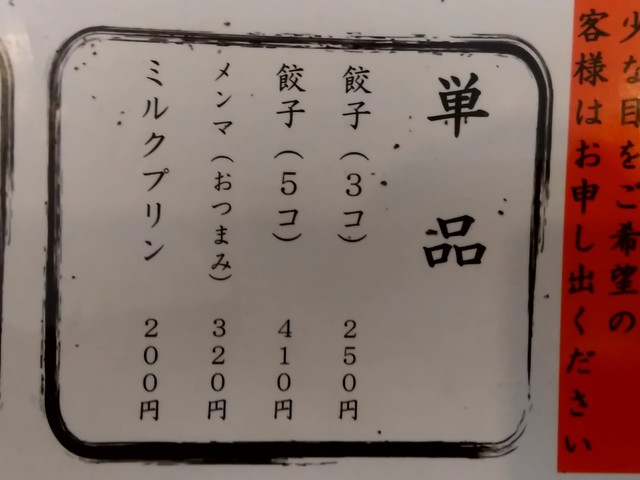 少な目をご希望の
客様はお申し出ください
単品
餃子（3コ） 250円
餃子（5コ） 410円
メンマ（おつまみ） 320円
ミルクプリン 200円